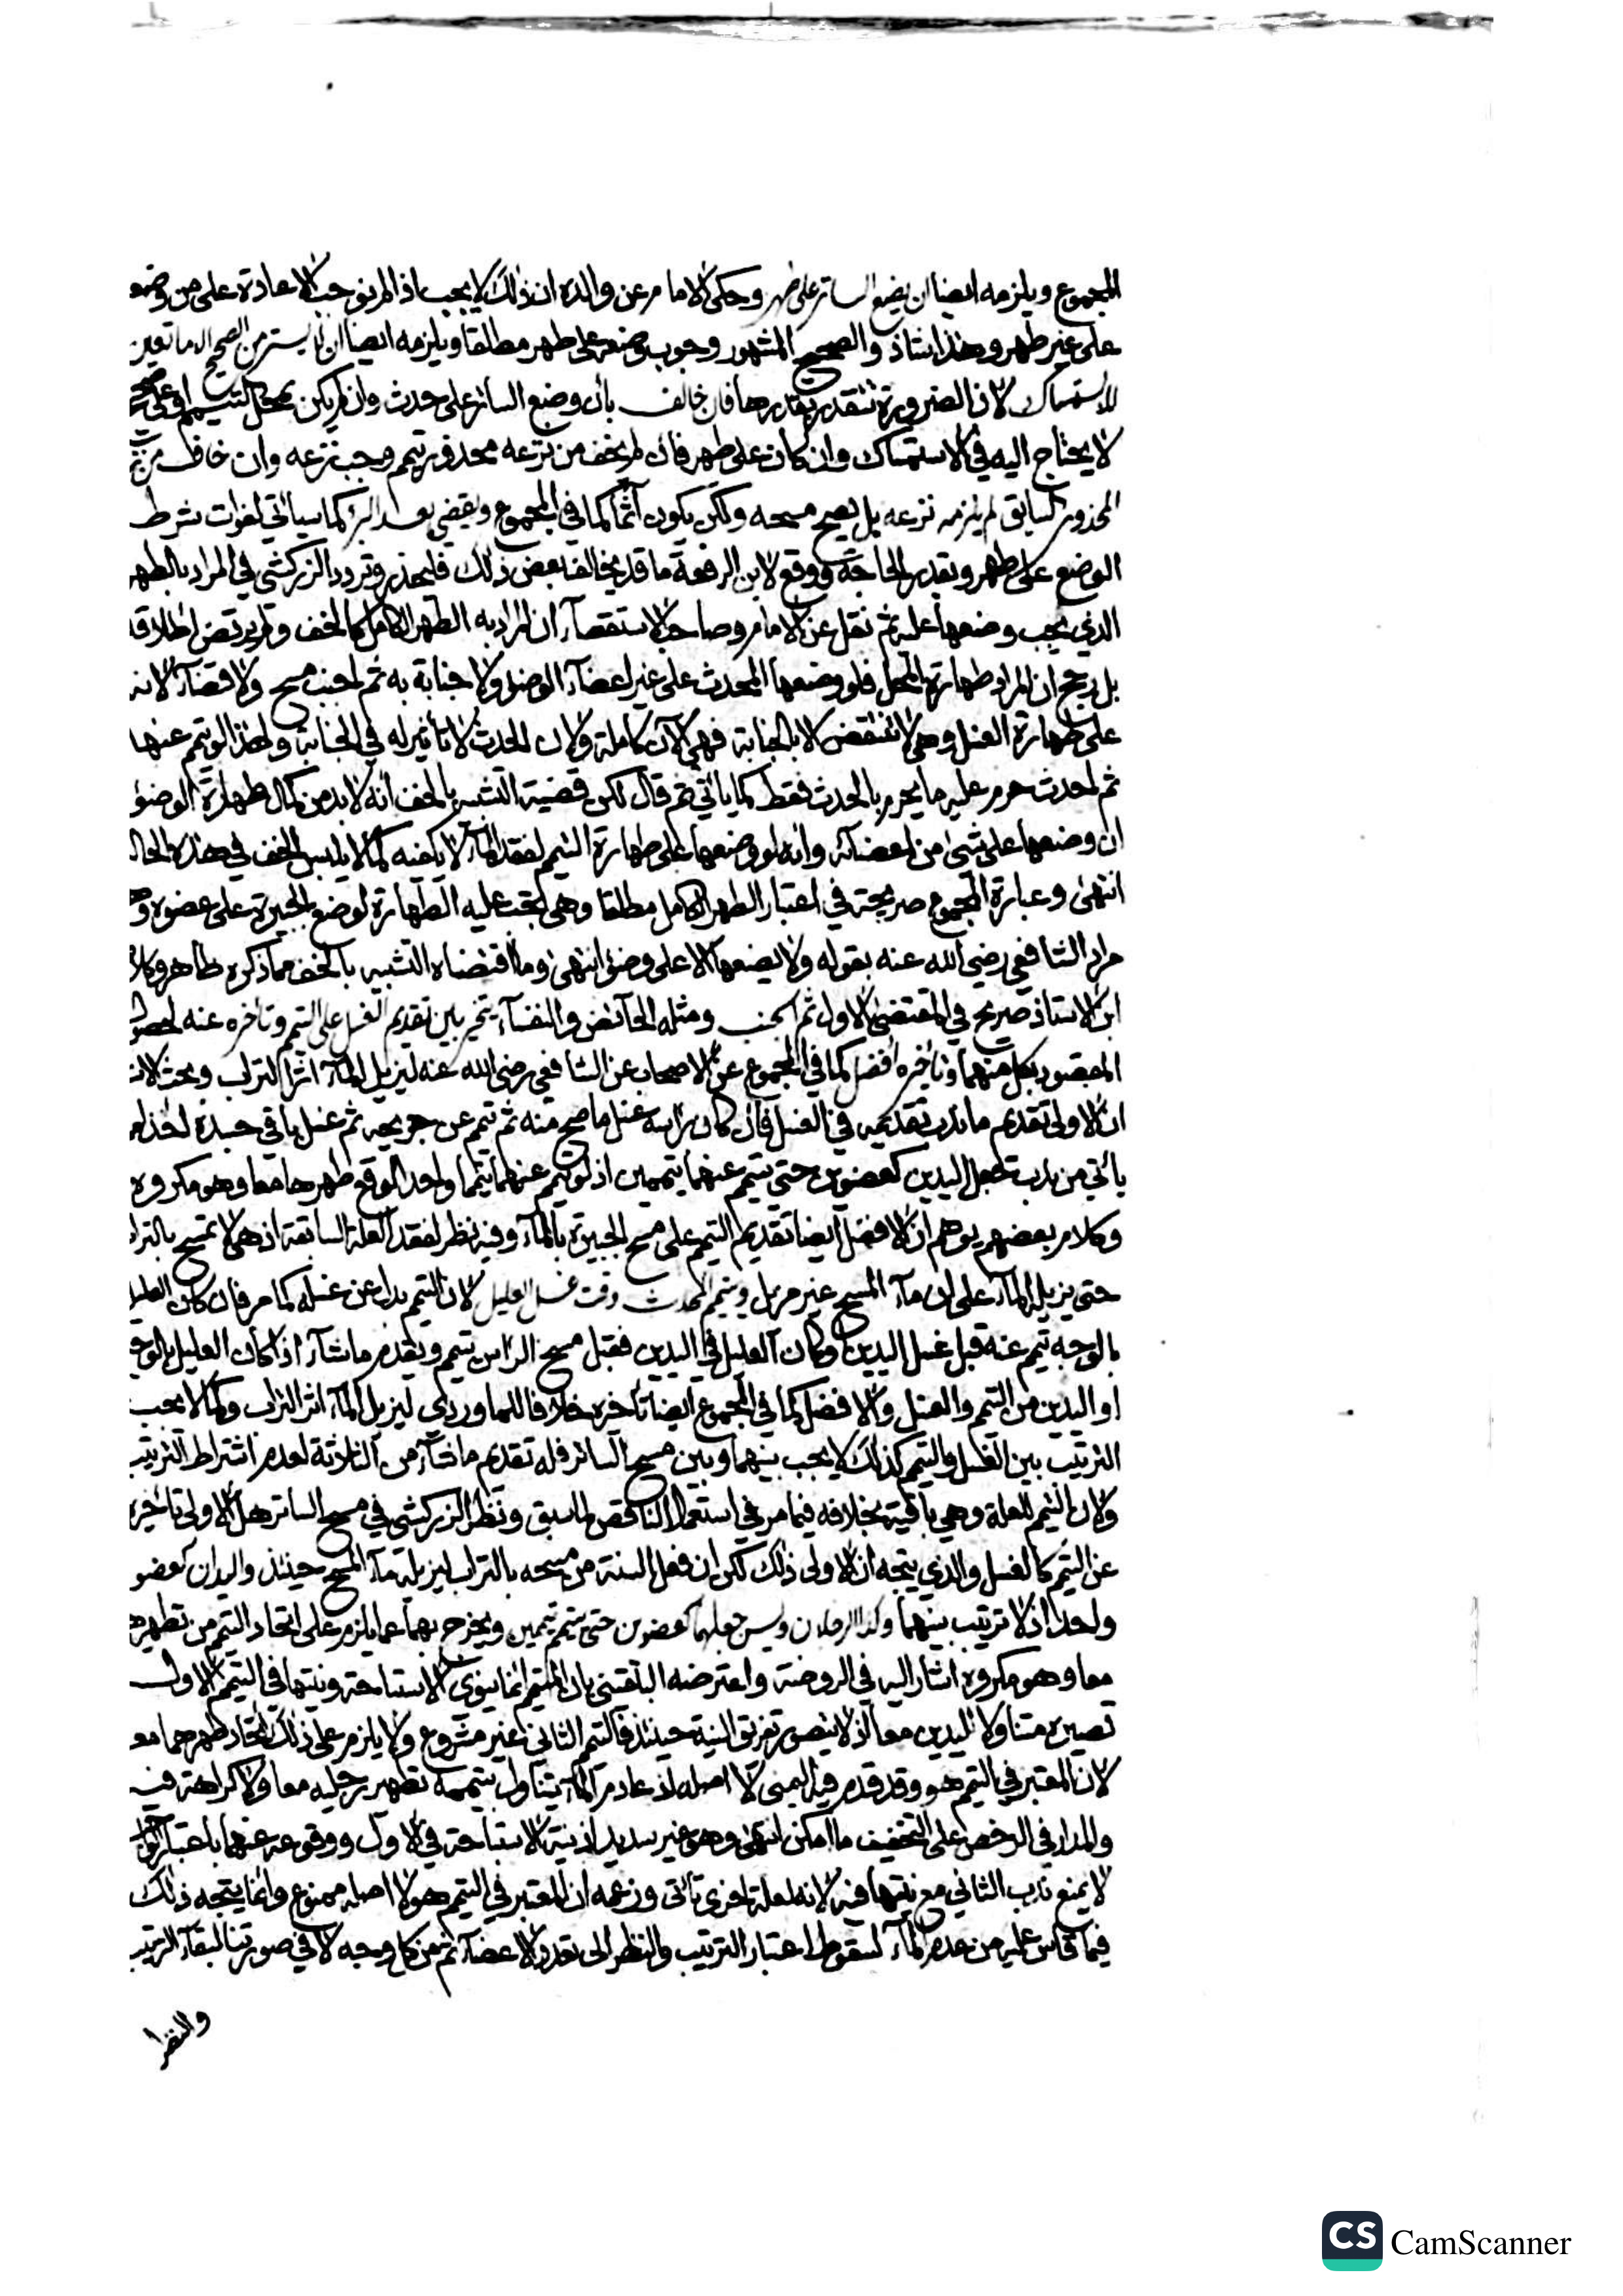 المجموع ويلزمه ايضا ان يضع الساتر على طهر وحكى الامام عن والده ان ذلك لا يجب اذ لم نوجب الاعادة على من وضعه
على غير طهر وهذا شاذ والصحيح المشهور وجوب وضعه على طهر مطلقا ويلزمه ايضا ان لا يستر من الصحيح الا ما تعين
للاستمساك لان الضرورة تتقدر بقدرها فان خالف بان وضع الساتر على حدث وان لم يكن بمحل التيمم او على صحيح
لا يحتاج اليه في الاستمساك وان كان على طهر فان لم يخف من نزعه محذور تيمم وجب نزعه وان خاف من نزعه
المحذور السابق لم يلزمه نزعه بل يصح مسحه ولكن يكون آثما كما في المجموع ويقضي بعد البرء كما سيأتي لفوات شرط
الوضع على طهر وبقدر الحاجة ووقع لابن الرفعة ما قد يخالف بعض ذلك فليحذر وتردد الزركشي في المراد بالطهر
الذي يجب وضعها عليه ثم نقل عن الامام وصاحب الاستقصاء ان المراد به الطهر الكامل كالخف ولم يرتض اطلاقه
بل رجح ان المراد طهارة المحل فلو وضعها المحدث على غير اعضاء الوضوء ولا جنابة به ثم اجنب مسح ولا قضاء لانه
على طهارة الغسل وهي لا تنتقض الا بالجنابة فهي الآن كاملة ولان الحدث لا تأثير له في الجنابة ولهذا لو تيمم عنها
ثم احدث حرم عليه ما يحرم بالحدث فقط كما يأتي ثم قال لكن قضية التشبيه بالخف انه لا بد من كمال طهارة الوضوء
ان وضعها على شئ من اعضائه وانه لو وضعها على طهارة التيمم لفقد الماء لا يكفيه كما لا يلبس الخف في هذه الحالة
انتهى وعبارة المجموع صريحة في اعتبار الطهر الكامل مطلقا وهي تجب عليه الطهارة لوضع الجبيرة على عضوه وهو
مراد الشافعي رضي الله عنه بقوله ولا يضعها الا على وضوء انتهى وما اقتضاه التشبيه بالخف مما ذكره ظاهر وكلام
ابن الاستاذ صريح في المقتضى الاول ثم الجنب ومثله الحائض والنفساء يتخير بين تقديم الغسل على التيمم وتأخره عنه لحصول
المقصود بكل منهما وتأخيره افضل كما في المجموع عن الاصحاب عن الشافعي رضي الله عنه ليزيل الماء اثر التراب وبحث
ان الاولى تقديم ما ندب تقديمه في الغسل فان كان برأسه غسل ما صح منه ثم تيمم عن جريحه ثم غسل باقي جسده اخذا مما
يأتي من ندب جعل اليدين كعضوين حتى يتيمم عنهما تيممين اذ لو تيمم عنهما تيمما واحدا لوقع طهرهما معا وهو مكروه
وكلام بعضهم يوهم ان الافضل ايضا تقديم التيمم على مسح الجبيرة بالماء وفيه نظر لفقد العلة السابقة اذ هي لا تمسح بالتراب
حتى يزيله الماء على ان ماء المسح غير مزيل ويتيمم المحدث وقت غسل العليل لان التيمم بدل عن غسله كما مر فان كان العليل
بالوجه تيمم عنه قبل غسل اليدين وكان العليل في اليدين فقبل مسح الراس تيمم ويقدم ما شاء اذا كان العليل بالوجه
او اليدين من التيمم والغسل والافضل كما في المجموع ايضا تأخره خلافا للماوردي ليزيل الماء اثر التراب وكما لا يجب
الترتيب بين الغسل والتيمم كذلك لا يجب بينهما وبين مسح الساتر فله تقديم ما شاء من الثلاثة لعدم اشتراط الترتيب
ولان التيمم للعلة وهي باقية بخلافه فيما مر في استعمال الناقص لما سبق ونظر الزركشي في مسح الساتر هل الاولى تأخيره
عن التيمم كالغسل والذي يتجه ان الاولى ذلك لكن ان فعل السنة من مسحه بالتراب ليزيله ماء المسح حينئذ واليدان كعضو
واحد اذ لا ترتيب بينهما وكذا الرجلان ويسن جعلهما كعضوين حتى يتيمم تيممين ويخرج بهما عما يلزم على اتحاد التيمم من تطهيرهما
معا وهو مكروه اشار اليه في الروضة واعترضه البلقيني بان المتيمم انما ينوي الاستباحة ونيتها في التيمم الاول
تصيره متناولا لليدين معا اذ لا يتصور تفريق النية حينئذ فالتيمم الثاني غير مشروع ولا يلزم على ذلك اتحاد طهرهما معا
لان المعتبر في التيمم هو وقد قدم فيه اليمنى لا اصله اذ عادم الماء يتناول بتيممه تطهير رجليه معا ولا كراهة فيه
والمدار في الرخص على التخفيف ما امكن انتهى وهو غير سديد اذ نية الاستباحة في الاول ووقوعه عنهما باعتبار
لا يمنع ندب الثاني مع نيتها فيه لانه لعلة اخرى تأتي وزعمه ان المعتبر في التيمم هو لا اصله ممنوع وانما يتجه ذلك
فيما قاس عليه من عدم الماء لسقوط اعتبار الترتيب والنظر الى تعدد الاعضاء ثم من كل وجه لا في صورتنا لبقاء الترتيب
والنظر
CS CamScanner